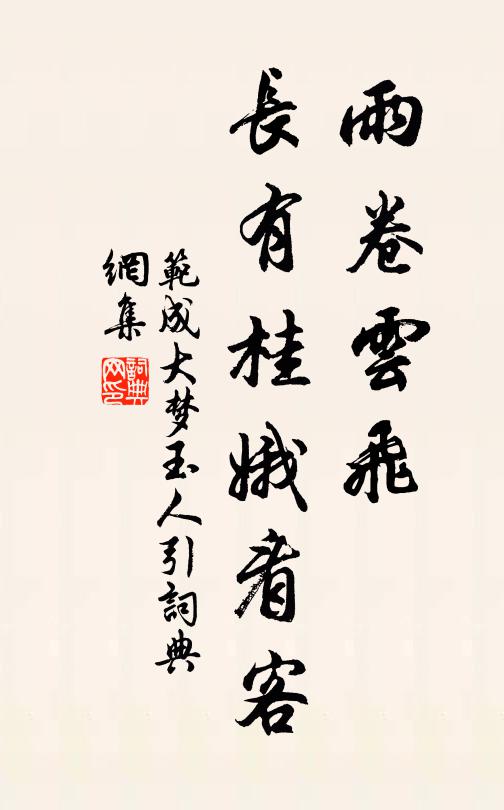 雨卷雲飛
長有桂娥看客
範成大梦玉人引詞典
網集
詞典
网印